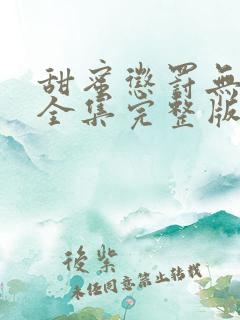 甜蜜懲罰無
全集完整版
後柴
未经同意禁止转载